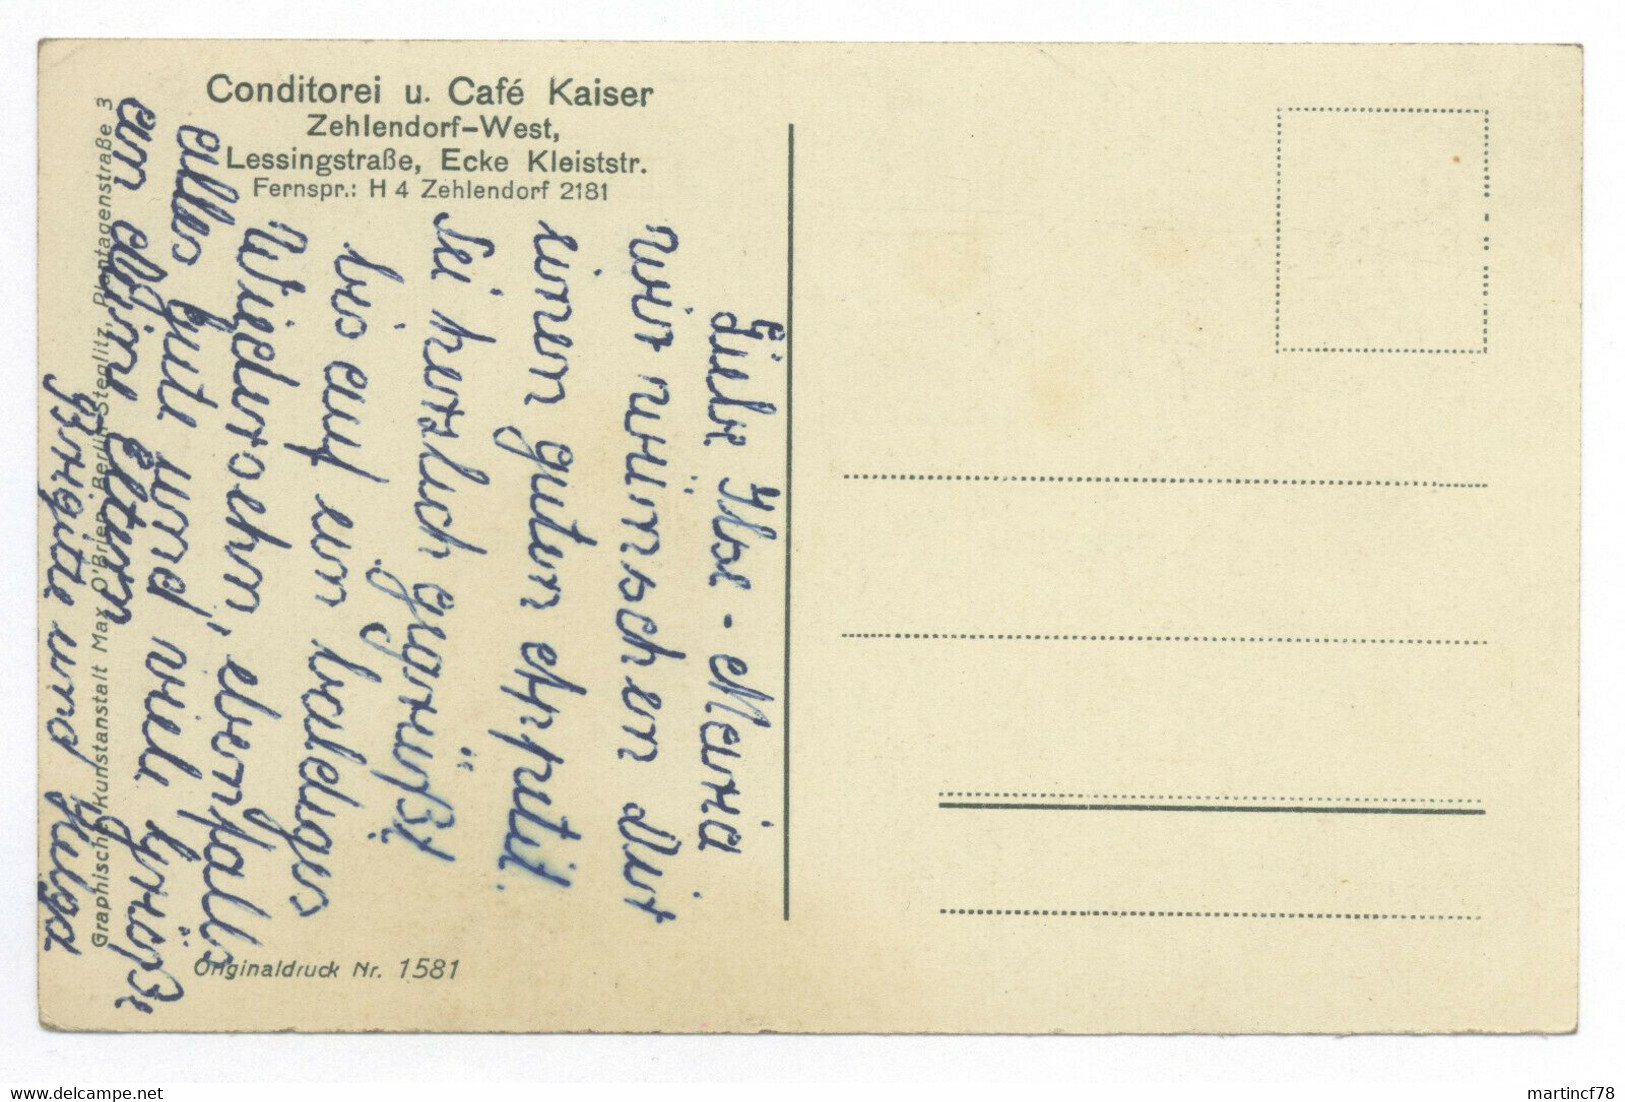 Conditorei u. Café Kaiser
Zehlendorf-West,
Lessingstraße, Ecke Kleiststr.
Fernspr.: H 4 Zehlendorf 2181
Liebe Ilse-Maria
wir wünschen dir
einen guten Appetit.
Sei herzlich gegrüßt
bis auf ein baldiges
Wiedersehn, ebenfalls
alles Gute und viele Grüße
an deine Eltern
Brigitte und Helga
Graphische Kunstanstalt Max O'Brien, Berlin-Steglitz, Plantagenstraße 3
Originaldruck Nr. 1581
martincf78